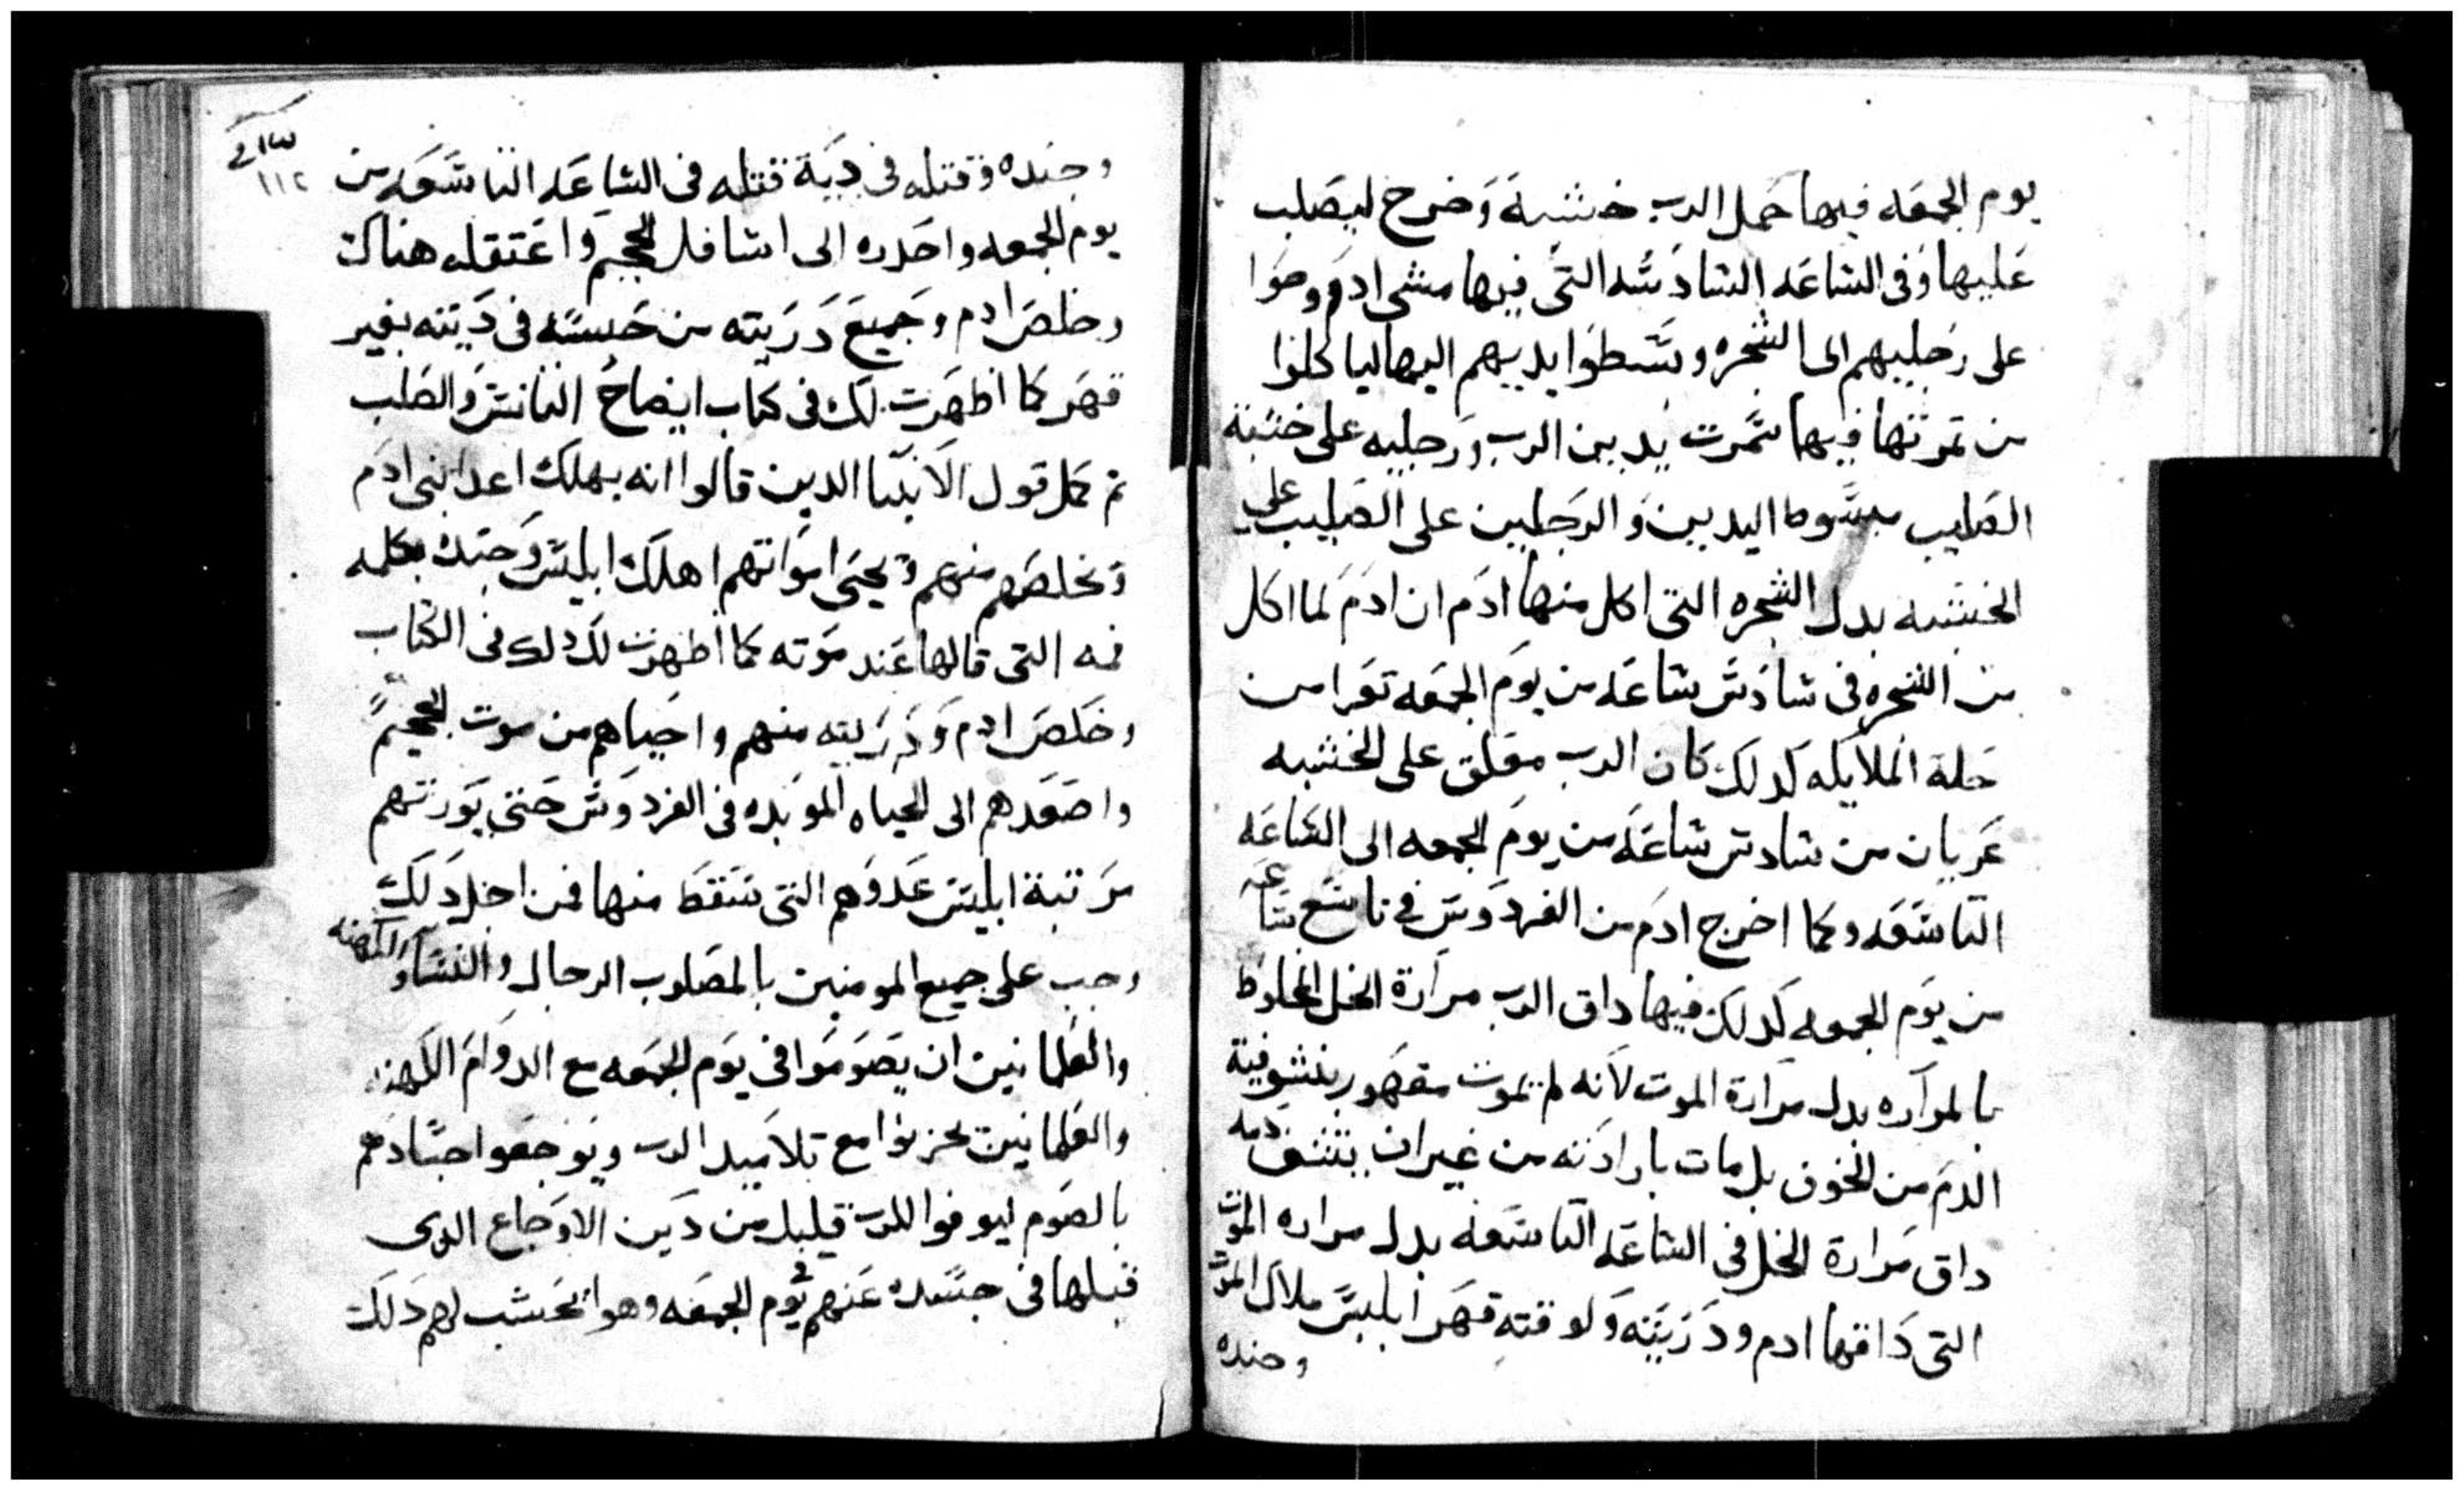 يوم الجمعه فيها حمل الرب خشبة وخرج ليصلب
عليها وفى الشاعه الشادشه التى فيها مشى ادم وحوا
على رجليهم الى الشجره وبشطوا يديهم اليها لياكلوا
من تمرتها فيها شمرت يدين الرب ورجليه على خشبة
الصليب مبشوط اليدين والرجلين على الصليب على
الخشبه بدل الشجره التى اكل منها ادم ان ادم لما اكل
من الشجره فى شادش شاعه من يوم الجمعه تعرا من
حلة الملايكه كدلك كان الرب معلق على الخشبه
عريان من شادش شاعه من يوم الجمعه الى الشاعه
التاشعه وكما اخرج ادم من الفردوش فى تاشع شاعه
من يوم الجمعه كدلك فيها داق الرب مرارة الخل المخلوط
بالمراره بدل مرارة الموت لانه لم يموت مقهور بنشوفية
الدم من الخوف بل مات بارادته من غير ان ينشف دمه
داق مرارة الخل فى الشاعه التاشعه بدل مراره الموت
التى داقها ادم ودريته ولوقته قهر ابليش ملاك الموت
وجنده
١١٢
وجنده وقتله فى دية قتله فى الشاعه التاشعه من
يوم الجمعه واحدره الى اشافل الجحيم واعتقله هناك
وخلص ادم وجميع دريته من حبشه فى ديته بغير
قهر كما اظهرت لك فى كتاب ايضاح التانش والصلب
تم كمل قول الانبيا الدين قالوا انه يهلك اعدا بنى ادم
ويخلصهم منهم ويحيى امواتهم اهلك ابليش وجنده بكلمه
فمه التى قالها عند موته كما اظهرت لك دلك فى الكتاب
وخلص ادم ودريته منهم واحياهم من موت الجحيم
واصعدهم الى الحياه الموبده فى الفردوش حتى يورتهم
مرتبة ابليش عدوهم التى شقط منها فمن اجل دلك
وجب على جميع المومنين بالمصلوب الرجال والنشا والكهنه
والعلمانين ان يصوموا فى يوم الجمعه مع الدوام الكهنه
والعلمانين يحزنوا مع تلاميد الرب ويوجعوا اجشادهم
بالصوم ليوفوا للرب قليل من دين الاوجاع الدى
قبلها فى جشده عنهم فى يوم الجمعه وهو يحشب لهم دلك